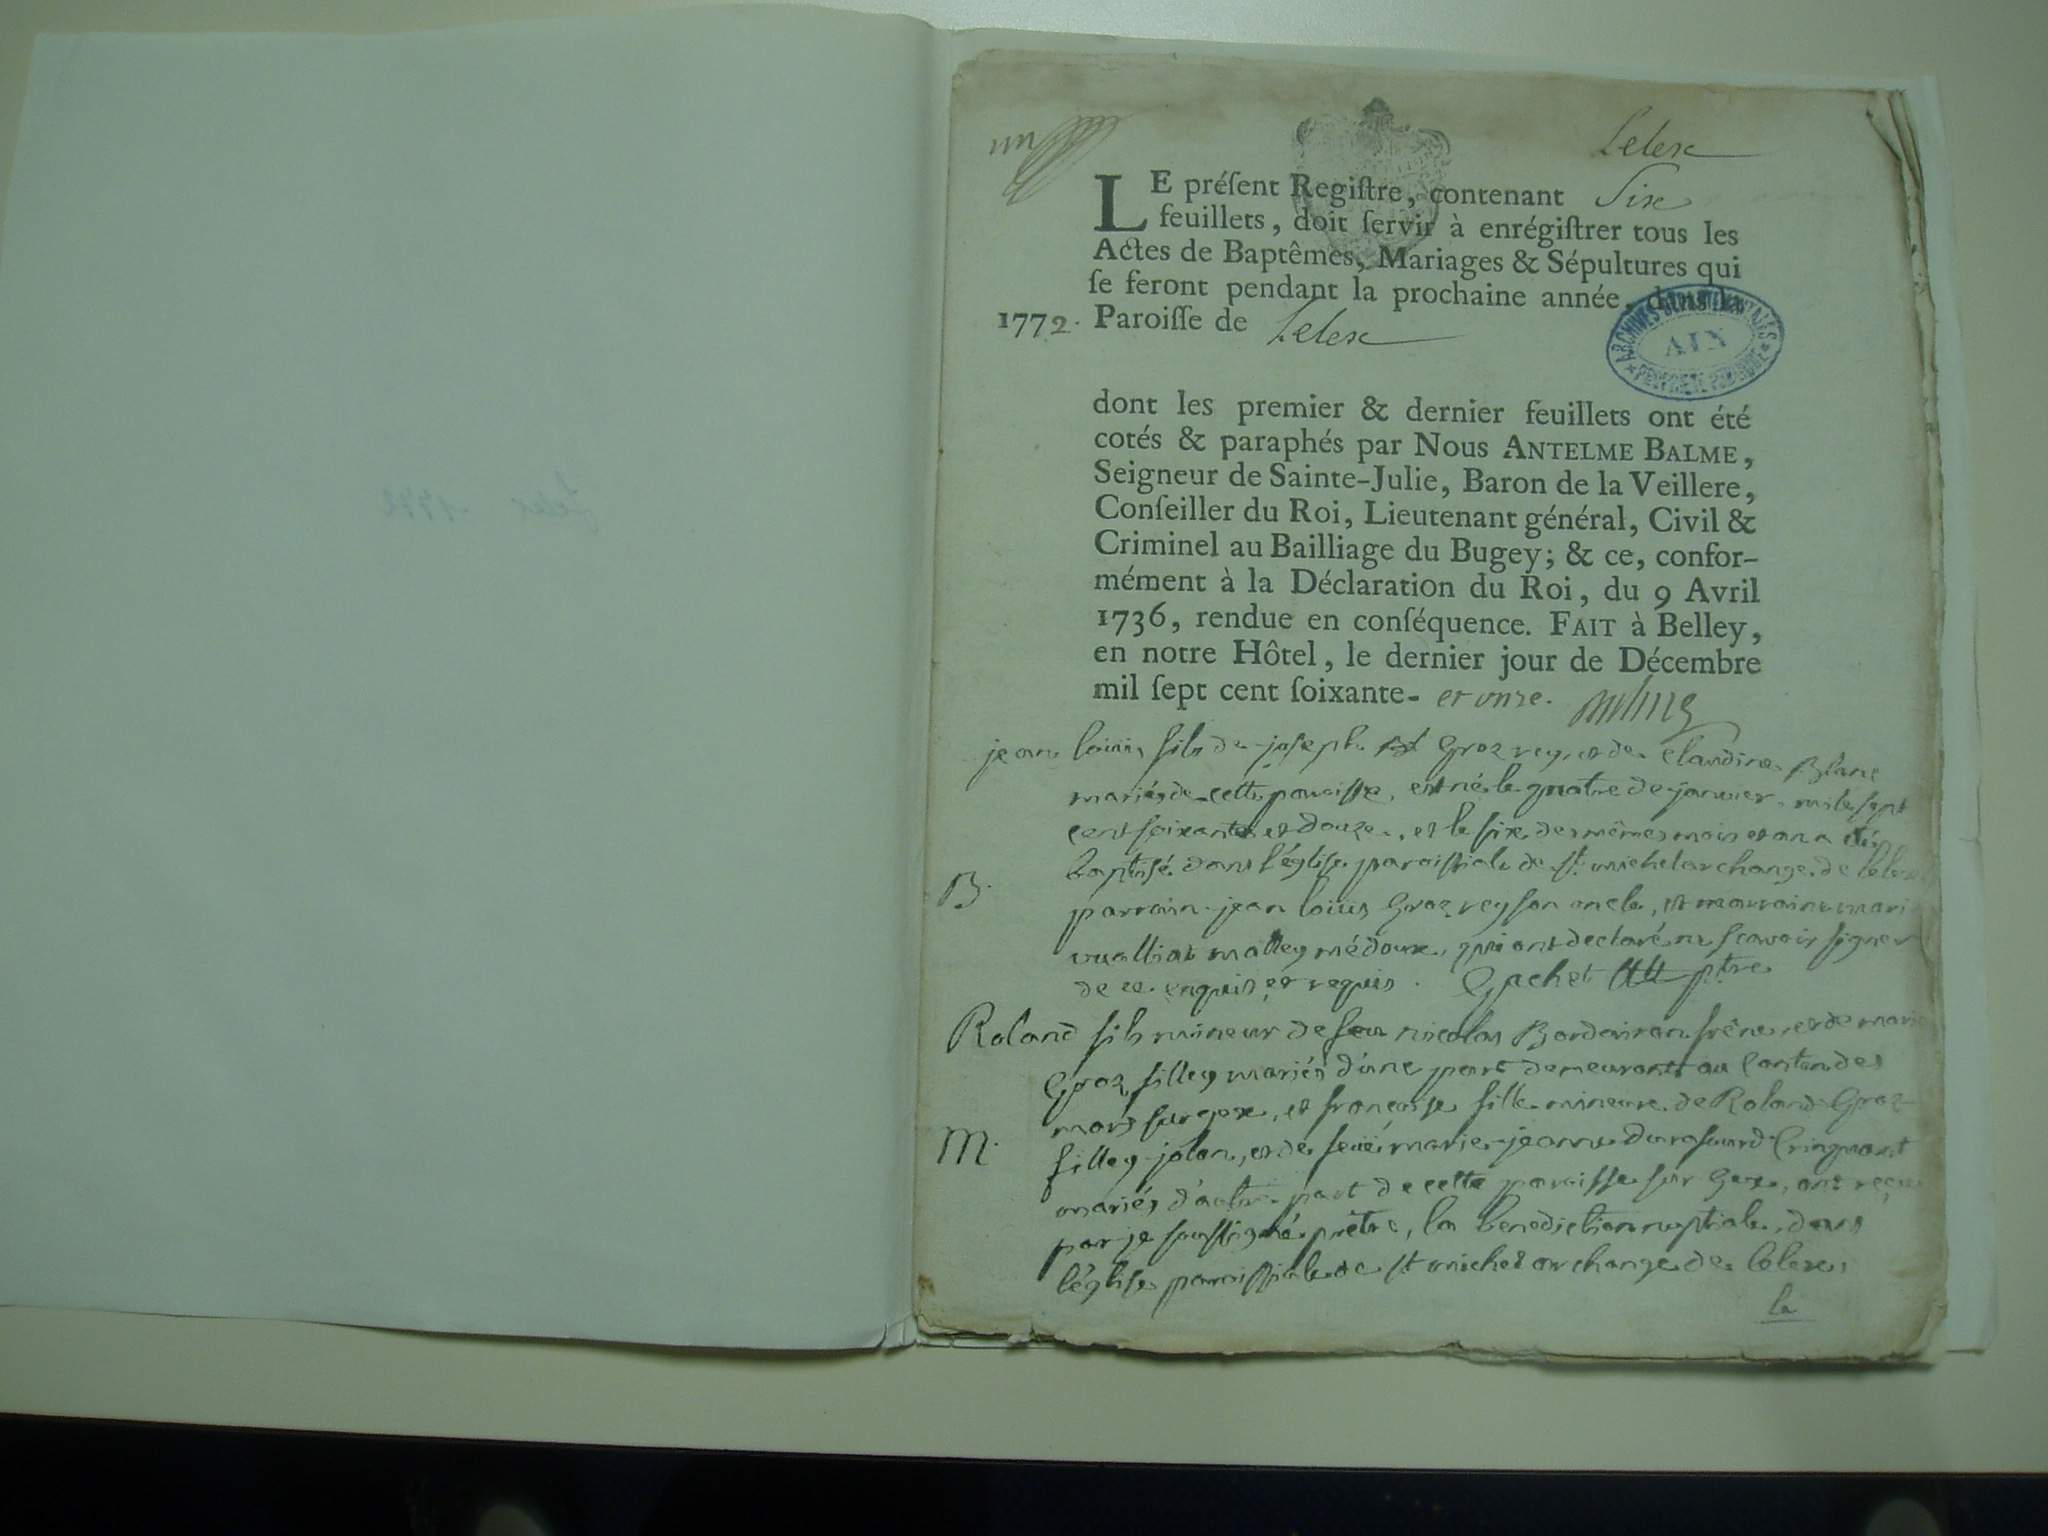 un
Lelex
LE préſent Regiſtre, contenant Six
feuillets, doit ſervir à enrégiſtrer tous les
Actes de Baptêmes, Mariages & Sépultures qui
ſe feront pendant la prochaine année, dans la
1772. Paroiſſe de Lelex
ARCHIVES DÉPARTEMENTALES
AIN
PROPRIÉTÉ PUBLIQUE
dont les premier & dernier feuillets ont été
cotés & paraphés par Nous ANTELME BALME,
Seigneur de Sainte-Julie, Baron de la Veillere,
Conſeiller du Roi, Lieutenant général, Civil &
Criminel au Bailliage du Bugey; & ce, confor-
mément à la Déclaration du Roi, du 9 Avril
1736, rendue en conſéquence. FAIT à Belley,
en notre Hôtel, le dernier jour de Décembre
mil ſept cent ſoixante- et onze. Balme
jean louis fils de joseph Groz rey, et de Claudine Blanc
mariés de cette paroisse, est né le quatre de janvier, mile sept
cent soixante et douze, et le six des mêmes mois et an a été
baptisé dans l'église paroissiale de st michel archange de lelex
B.
parrain jean louis Groz rey son oncle, et marraine mari
vualliat malley médoux, qui ont declaré ne scavoir signer
de ce enquis et requis. Gachet ptre
Roland fils mineur de feu nicolas Bordeiron frêne, et de marie
Groz filley mariés d'une part demeurants au
sur gex, et françoise fille mineure de Roland Groz
M.
filley jolan, et de feüe marie jeanne
mariés d'autre part de cette paroisse sur Gex, ont reçu
par je soussigné prêtre, la benediction nuptiale, dans
l'église paroissiale de st michel archange de lelex,
la